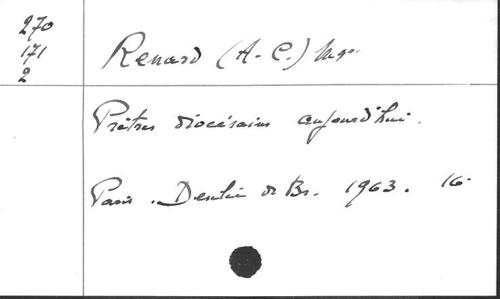 270
171
2
Renard (A-C.) Mgr.
Prêtres diocésains aujourd'hui.
Paris. Desclée de Br. 1963. 16°